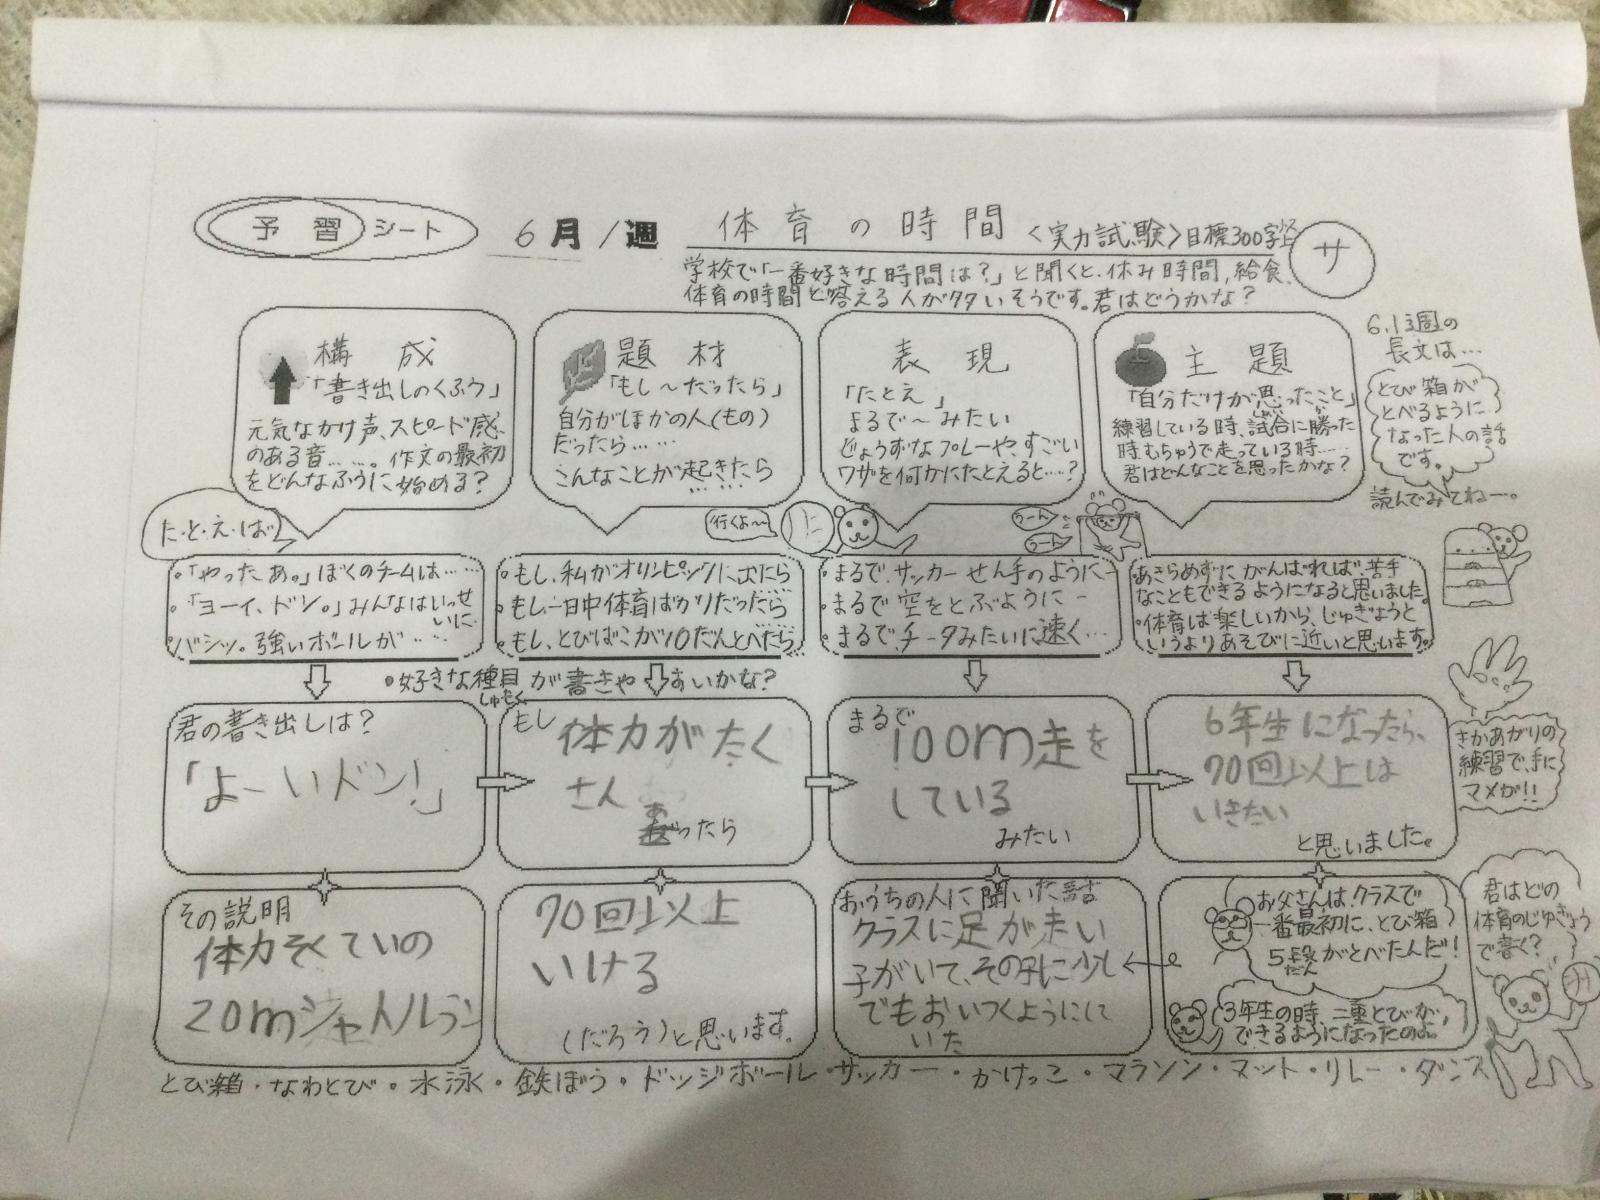 予習シート
6月1週
体育の時間
<実力試験>目標300字
サ
学校で「一番好きな時間は？」と聞くと、休み時間、給食、
体育の時間と答える人が多いそうです。君はどうかな？
構成
「書き出しのくふう」
元気なかけ声、スピード感
のある音……。作文の最初
をどんなふうに始める？
題材
「もし～だったら」
自分がほかの人(もの)
だったら……
こんなことが起きたら
……
表現
「たとえ」
まるで～みたい
じょうずなプレーや、すごい
ワザを何かにたとえると……？
主題
「自分だけが思ったこと」
練習している時、試合に勝った
時、むちゅうで走っている時……
君はどんなことを思ったかな？
6.1週の
長文は…
とび箱が
とべるように
なった人の話
です。
読んでみてねー。
た・と・え・ば
行くよ～
うーん
うーん
・「やったあ。」ぼくのチームは……
・「ヨーイ、ドン。」みんなはいっせ
いに…
・バシッ。強いボールが……
・もし、私がオリンピックに出たら
・もし、一日中体育ばかりだったら
・もし、とびばこが10だんとべたら
・まるで、サッカーせん手のように－
・まるで空をとぶように－
・まるで、チータみたいに速く…
・あきらめずにがんばれば、苦手
なこともできるようになると思いました。
・体育は楽しいから、じゅぎょうと
いうよりあそびに近いと思います。
・好きな種目が書きやすいかな？
しゅもく
君の書き出しは？
「よーいドン！」
もし
体力がたく
さん
あったら
まるで
100m走を
している
みたい
6年生になったら、
70回以上は
いきたい
と思いました。
さかあがりの
練習で、手に
マメが!!
その説明
体力そくていの
20mシャトルラン
70回以上
いける
(だろう)と思います。
おうちの人に聞いた話
クラスに足が走い
子がいて、その子に少し
でもおいつくようにして
いた
お父さんは、クラスで
一番最初に、とび箱
5段がとべたんだ！
だん
3年生の時、二重とびが、
できるようになったのよ。
君はどの
体育のじゅぎょう
で書く？
とび箱・なわとび・水泳・鉄ぼう・ドッジボール・サッカー・かけっこ・マラソン・マット・リレー・ダンス